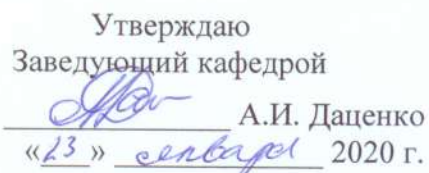 Утверждаю
Заведующий кафедрой
А.И. Даценко
«23» января 2020 г.